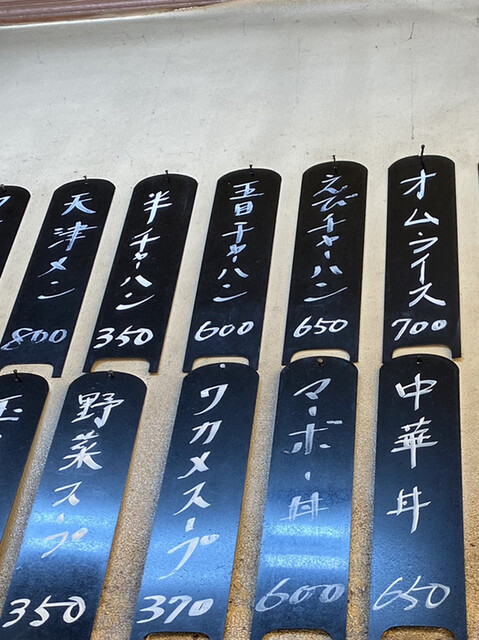 オムライス
700
えびチャーハン
650
五目チャーハン
600
半チャーハン
350
天津メン
800
中華丼
650
マーボー丼
600
ワカメスープ
370
野菜スープ
350
玉